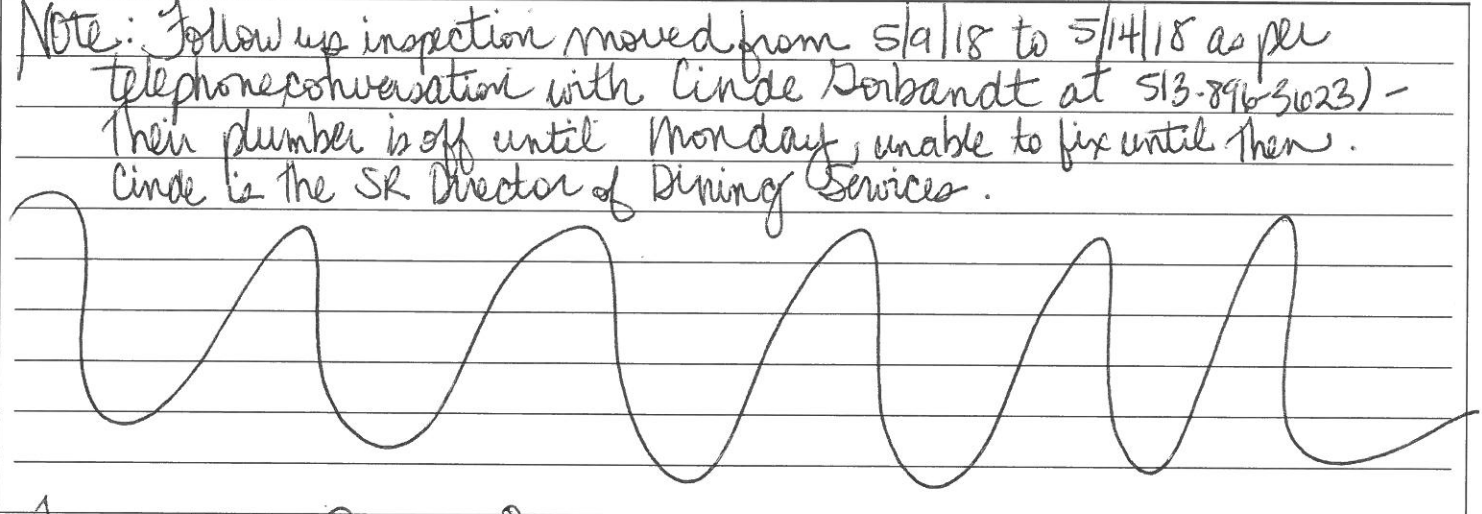 Note: Follow up inspection moved from 5/9/18 to 5/14/18 as per
telephone conversation with Cinde Gorbandt at 513-896-3623) -
Their plumber is off until Monday, unable to fix until then.
Cinde is the SR Director of Dining Services.